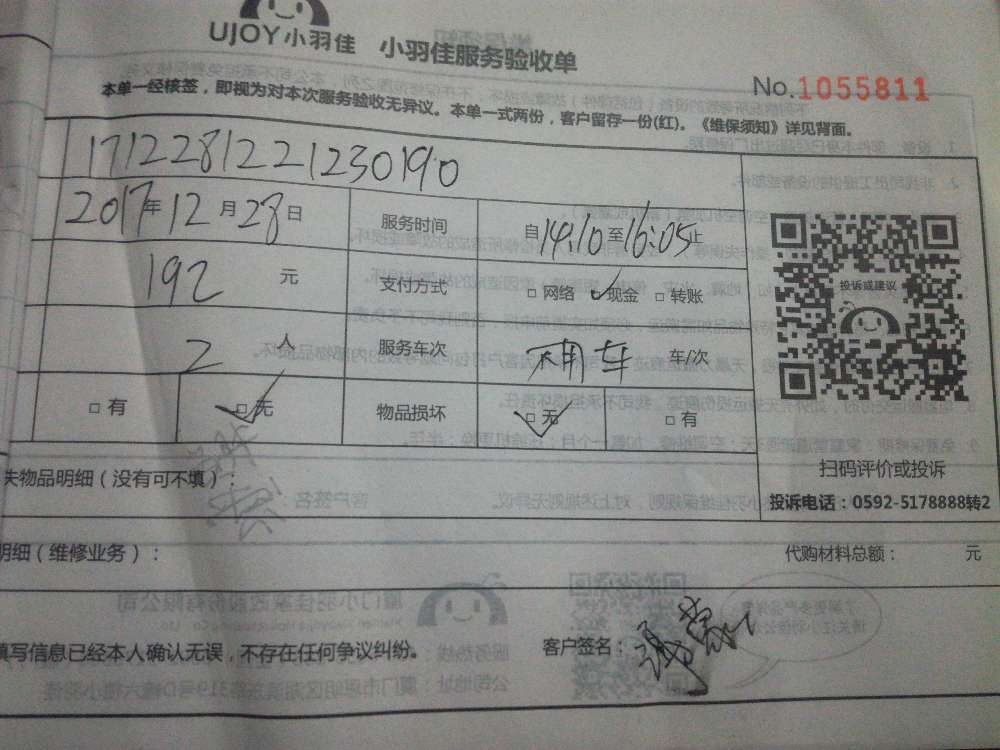 UJOY小羽佳 小羽佳服务验收单
No.1055811
本单一经核签，即视为对本次服务验收无异议。本单一式两份，客户留存一份(红)。《维保须知》详见背面。
171228122123 0190
2017年12月28日 服务时间 自14:10至16:05止
192 元 支付方式 □网络 ✓现金 □转账
投诉或建议
2 人 服务车次 不用车 车/次
□有 □无 物品损坏 □无 □有
扫码评价或投诉
失物品明细（没有可不填）：
投诉电话：0592-5178888转2
明细（维修业务）： 代购材料总额： 元
填写信息已经本人确认无误，不存在任何争议纠纷。 客户签名：